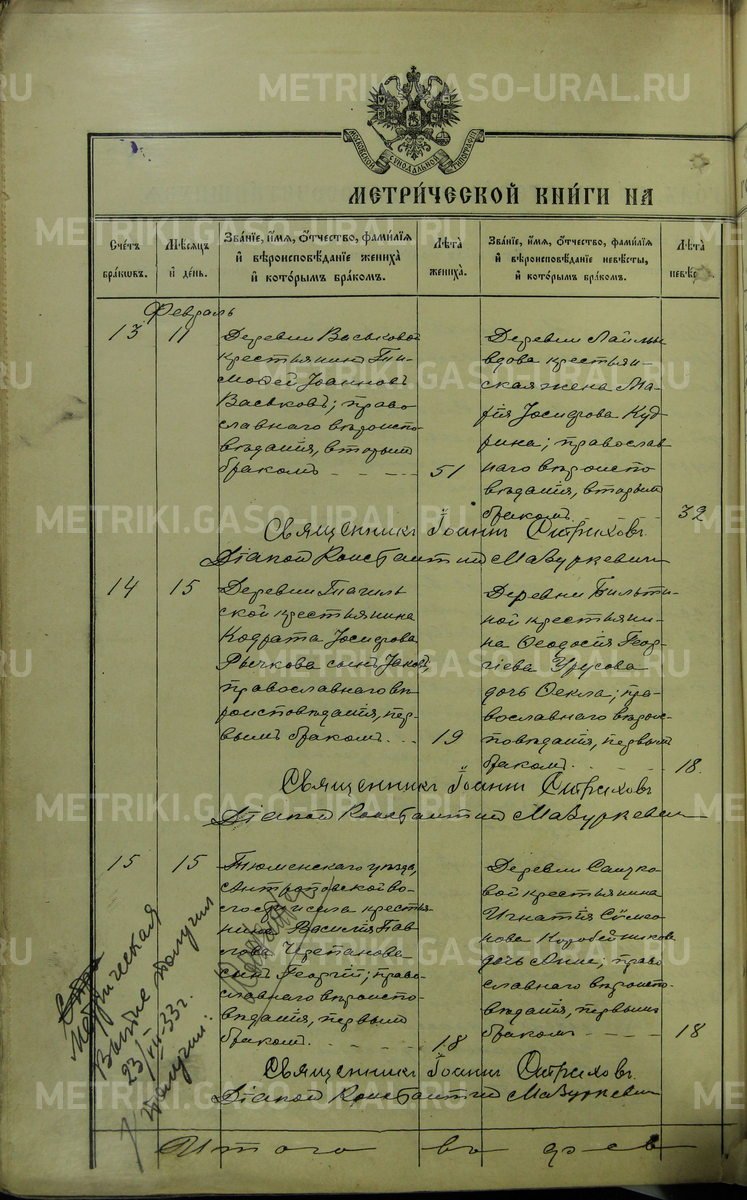 МЕТРИ́ЧЕСКОЙ КНИ́ГИ НА
Сче́тъ бра́кωвъ.
Мѣ́сяцъ и҆ де́нь.
Зва́нїе, и҆́мя, ѻ҆́тчество, фами́лїя
и҆ вѣроисповѣ́данїе жениха̀
и҆ кото́рымъ бра́комъ.
Лѣ́та жениха̀.
Зва́нїе, и҆́мя, ѻ҆́тчество, фами́лїя
и҆ вѣроисповѣ́данїе невѣ́сты,
и҆ кото́рымъ бра́комъ.
Лѣ́та невѣ́сты.
Февраль
13
11
Деревни Васьковой
крестьянинъ Ти-
моѳей Іоанновъ
Васьковъ; право
славнаго вѣроиспо
вѣданія, вторымъ
бракомъ
51
Деревни
вдова крестьян-
ская жена Ма-
рія Іосифова Куд-
рина; православ
наго вѣроиспо
вѣданія, вторымъ
бракомъ
32
Священникъ Іоаннъ Стриховъ
Діаконъ Константинъ Мазуркевичъ
14
15
Деревни Тагиль
ской крестьянина
Кодрата Іосифова
Рычкова сынъ Іаковъ,
православнаго вѣ
роисповѣданія, пер-
вымъ бракомъ
19
Деревни
ной крестьяни-
на Ѳеодосія Геор-
гіева Урусова
дочь Ѳекла; пра-
вославнаго вѣроис-
повѣданія, первымъ
бракомъ
18.
Священникъ Іоаннъ Стриховъ
Діаконъ Константинъ Мазуркевичъ
15
15
Тюменскаго уѣзда,
Антроповской во-
лости, села крестья
нина Василія Пав
лова
сынъ Георгій; право
славнаго вѣроиспо-
вѣданія, первымъ
бракомъ
18
Деревни
вой крестьянина
Игнатія Сѵмео
нова Коробейникова
дочь Анна; право
славнаго вѣроиспо-
вѣданія, первымъ
бракомъ
18
Священникъ Іоаннъ Стриховъ
Діаконъ Константинъ Мазуркевичъ
Метрическая
Выпис получил
23/VII-33г.
Получил:
Итого въ фев
METRIKI.GASO-URAL.RU